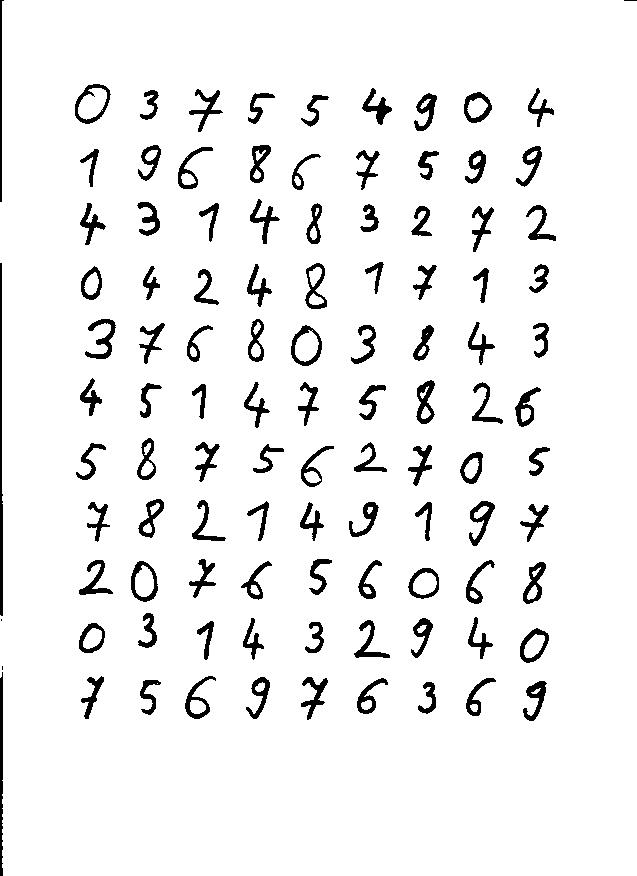 0 3 7 5 5 4 9 0 4
1 9 6 8 6 7 5 9 9
4 3 1 4 8 3 2 7 2
0 4 2 4 8 1 7 1 3
3 7 6 8 0 3 8 4 3
4 5 1 4 7 5 8 2 6
5 8 7 5 6 2 7 0 5
7 8 2 1 4 9 1 9 7
2 0 7 6 5 6 0 6 8
0 3 1 4 3 2 9 4 0
7 5 6 9 7 6 3 6 9